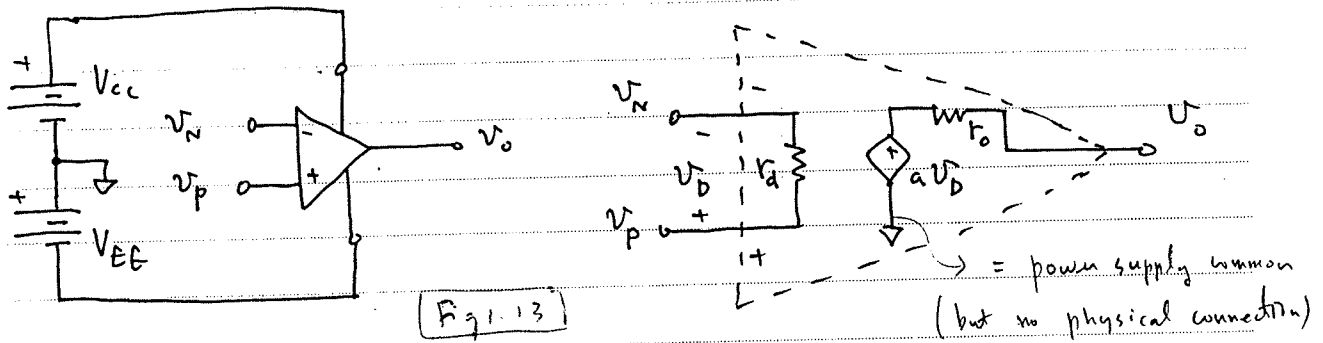 +
Vcc
-
+
-
VEE
vN
-
+
vP
vo
Fig 1.13
-
vN
-
vD
rd
+
vP
+
+
a vD
ro
vo
= power supply common
(but no physical connection)